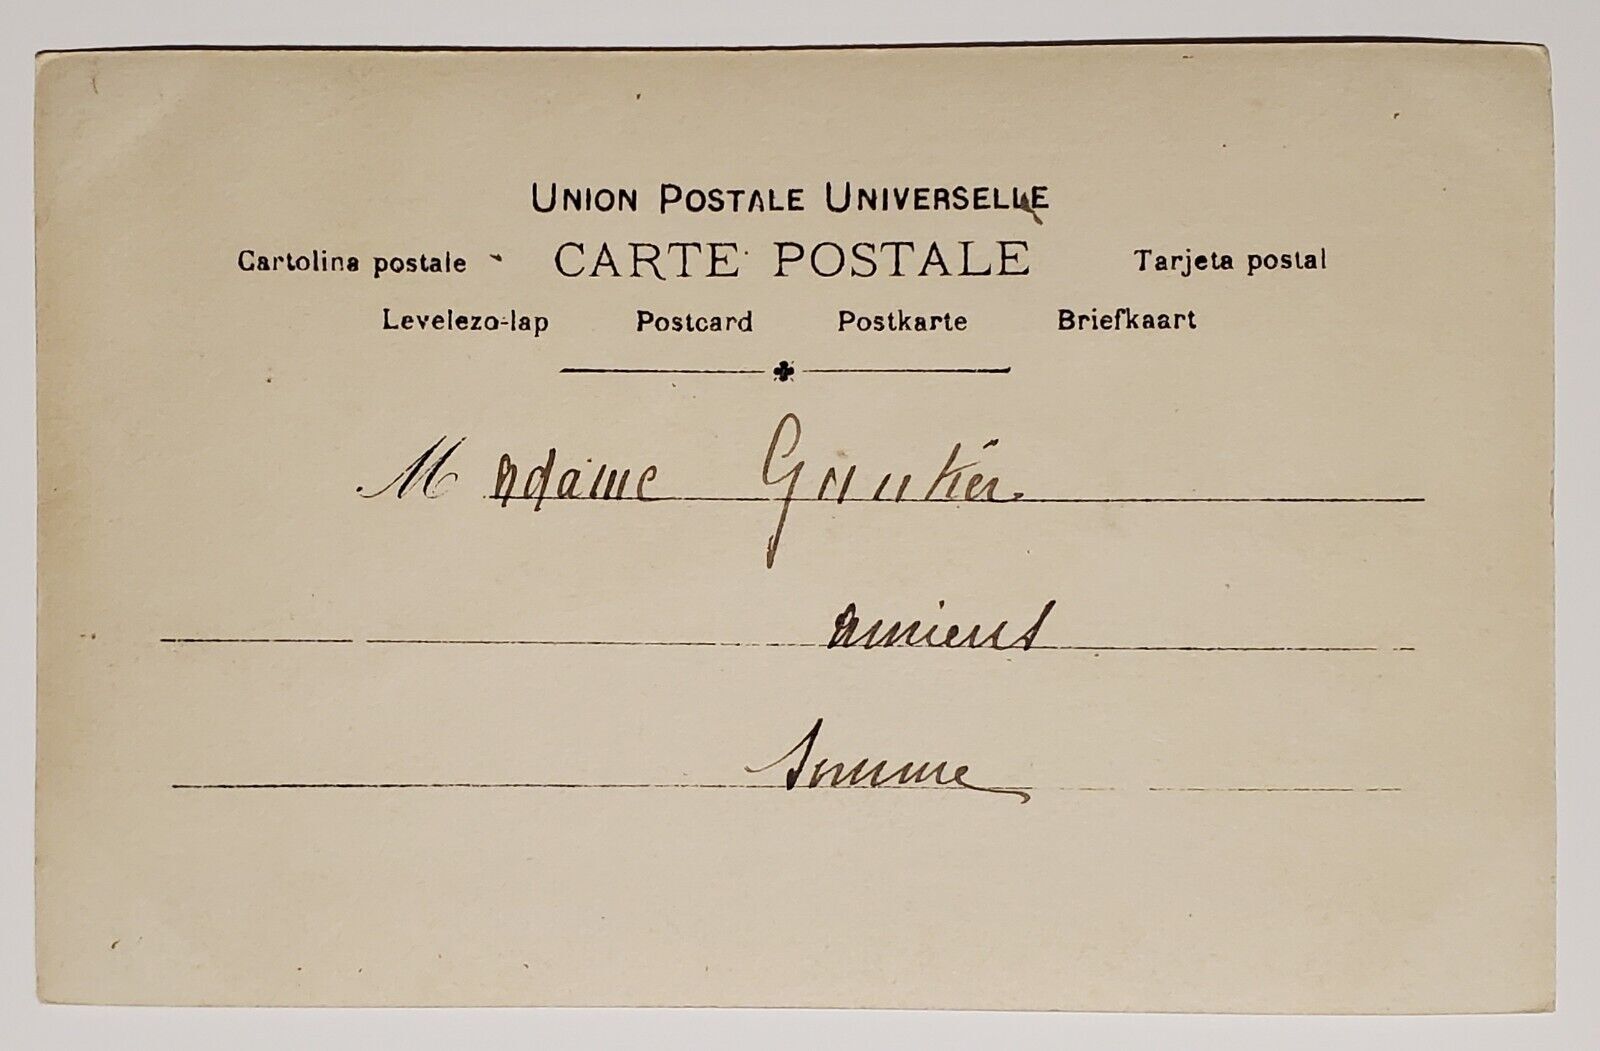 UNION POSTALE UNIVERSELLE
Cartolina postale CARTE POSTALE Tarjeta postal
Levelezo-lap Postcard Postkarte Briefkaart
Madame
amiens
Somme